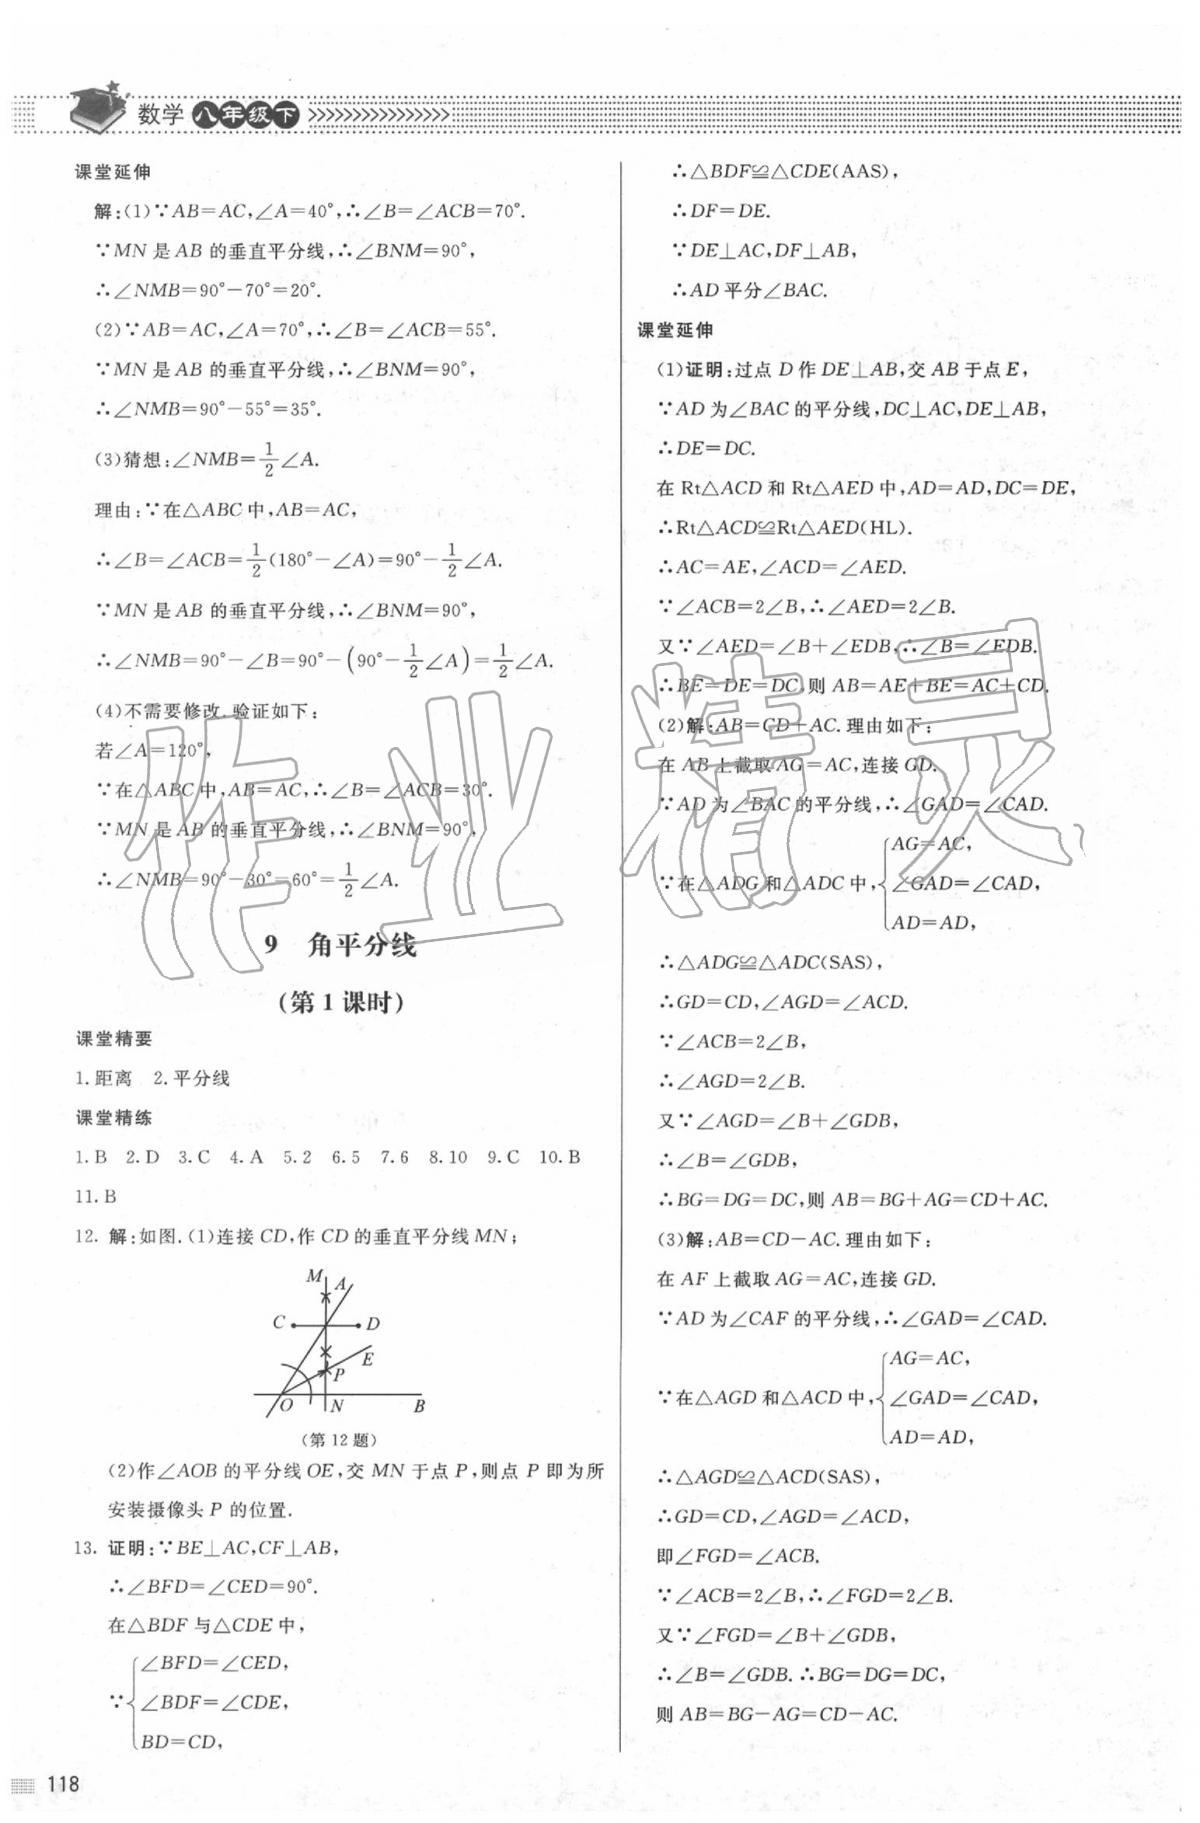 数学 八年级下
课堂延伸
解:(1)∵AB=AC,∠A=40°,∴∠B=∠ACB=70°.
∵MN 是 AB 的垂直平分线,∴∠BNM=90°,
∴∠NMB=90°-70°=20°.
(2)∵AB=AC,∠A=70°,∴∠B=∠ACB=55°.
∵MN 是 AB 的垂直平分线,∴∠BNM=90°,
∴∠NMB=90°-55°=35°.
(3)猜想:∠NMB=1/2∠A.
理由:∵在△ABC 中,AB=AC,
∴∠B=∠ACB=1/2(180°-∠A)=90°-1/2∠A.
∵MN 是 AB 的垂直平分线,∴∠BNM=90°,
∴∠NMB=90°-∠B=90°-(90°-1/2∠A)=1/2∠A.
(4)不需要修改.验证如下:
若∠A=120°,
∵在△ABC 中,AB=AC,∴∠B=∠ACB=30°.
∵MN 是 AB 的垂直平分线,∴∠BNM=90°,
∴∠NMB=90°-30°=60°=1/2∠A.
9 角平分线
(第 1 课时)
课堂精要
1.距离 2.平分线
课堂精练
1.B 2.D 3.C 4.A 5.2 6.5 7.6 8.10 9.C 10.B
11.B
12. 解:如图.(1)连接 CD,作 CD 的垂直平分线 MN;
M A
C D
E
P
O N B
(第 12 题)
(2)作∠AOB 的平分线 OE,交 MN 于点 P,则点 P 即为所
安装摄像头 P 的位置.
13. 证明:∵BE⊥AC,CF⊥AB,
∴∠BFD=∠CED=90°.
在△BDF 与△CDE 中,
∠BFD=∠CED,
∵ ∠BDF=∠CDE,
BD=CD,
∴△BDF≌△CDE(AAS),
∴DF=DE.
∵DE⊥AC,DF⊥AB,
∴AD 平分∠BAC.
课堂延伸
(1)证明:过点 D 作 DE⊥AB,交 AB 于点 E,
∵AD 为∠BAC 的平分线,DC⊥AC,DE⊥AB,
∴DE=DC.
在 Rt△ACD 和 Rt△AED 中,AD=AD,DC=DE,
∴Rt△ACD≌Rt△AED(HL).
∴AC=AE,∠ACD=∠AED.
∵∠ACB=2∠B,∴∠AED=2∠B.
又∵∠AED=∠B+∠EDB,∴∠B=∠EDB.
∴BE=DE=DC,则 AB=AE+BE=AC+CD.
(2)解:AB=CD+AC.理由如下:
在 AB 上截取 AG=AC,连接 GD.
∵AD 为∠BAC 的平分线,∴∠GAD=∠CAD.
AG=AC,
∵在△ADG 和△ADC 中, ∠GAD=∠CAD,
AD=AD,
∴△ADG≌△ADC(SAS),
∴GD=CD,∠AGD=∠ACD.
∵∠ACB=2∠B,
∴∠AGD=2∠B.
又∵∠AGD=∠B+∠GDB,
∴∠B=∠GDB,
∴BG=DG=DC,则 AB=BG+AG=CD+AC.
(3)解:AB=CD-AC.理由如下:
在 AF 上截取 AG=AC,连接 GD.
∵AD 为∠CAF 的平分线,∴∠GAD=∠CAD.
AG=AC,
∵在△AGD 和△ACD 中, ∠GAD=∠CAD,
AD=AD,
∴△AGD≌△ACD(SAS),
∴GD=CD,∠AGD=∠ACD,
即∠FGD=∠ACB.
∵∠ACB=2∠B,∴∠FGD=2∠B.
又∵∠FGD=∠B+∠GDB,
∴∠B=∠GDB.∴BG=DG=DC,
则 AB=BG-AG=CD-AC.
作业精灵
118